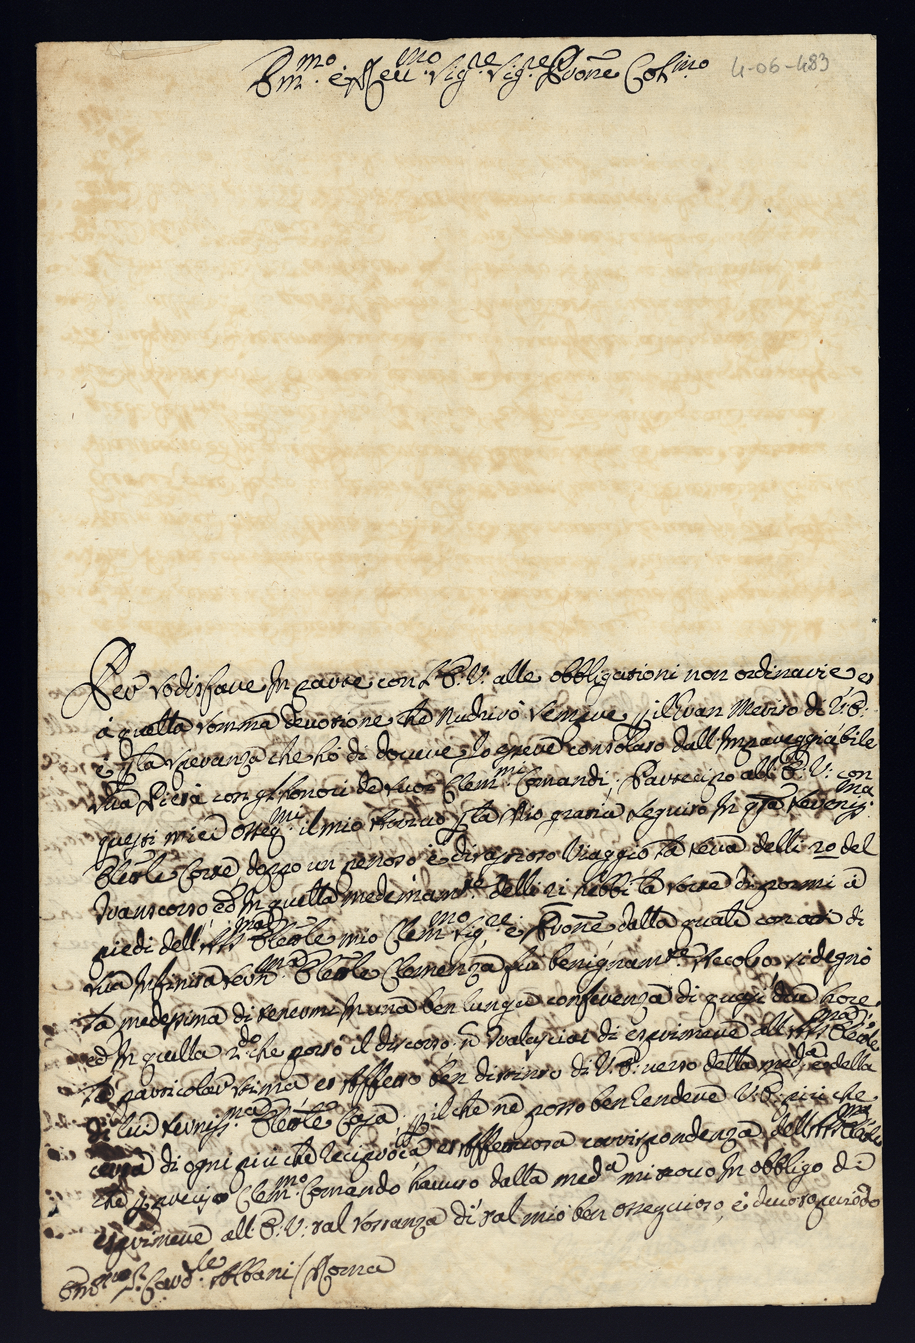 Em.mo e Rev.mo Sig.re Sig.re Prone Col.mo
4-06-483
Per sodisfare in parte con l'E: V: alle obbligationi non ordinarie et
à quella somma devotione che nudrirò sempre p il gran merito di V: E:
è p la speranza che hò di dovere lo essere consolato dall'Impareggiabile
sua Pietà con gl'honori de suoi Clem.mi Comandi, Partecipo all'E: V: con
questi miei osseq.mi il mio arrivo p la Dio gratia seguito in qta Sereniss.ma
Eletle Corte doppo un penoso è disastroso Viaggio la sera delli 20 del
trascorso ed in quella medesimam.te delli 21 hebbi la sorte di pormi à
piedi dell' Eletle mio Clem.mo Sig.re e Prone dalla quale con atti di
sua Infinita Eletle Clemenza fui benignam.te accolto, si degnò
la medesima di tenermi in una ben lunga conferenza di quasi due hore,
ed in quella che portò il discorso nò tralasciai di esprimere all' Eletle
la particolar stima et affetto ben distinto di V: E: verso detta med.a è della
di lui Sereniss.ma Eletle Casa; p il che ne posso ben rendere V: E: più che
certa di ogni più che reciproca et affettuosa corrispondenza dell'
che p preciso Clem.mo Comando havuto dalla med.a mi trovo in obbligo di
esprimere all'E: V: tal costanza di tal mio ben ossequioso, è devoto
Em.mo S.r Card.le Albani / Roma